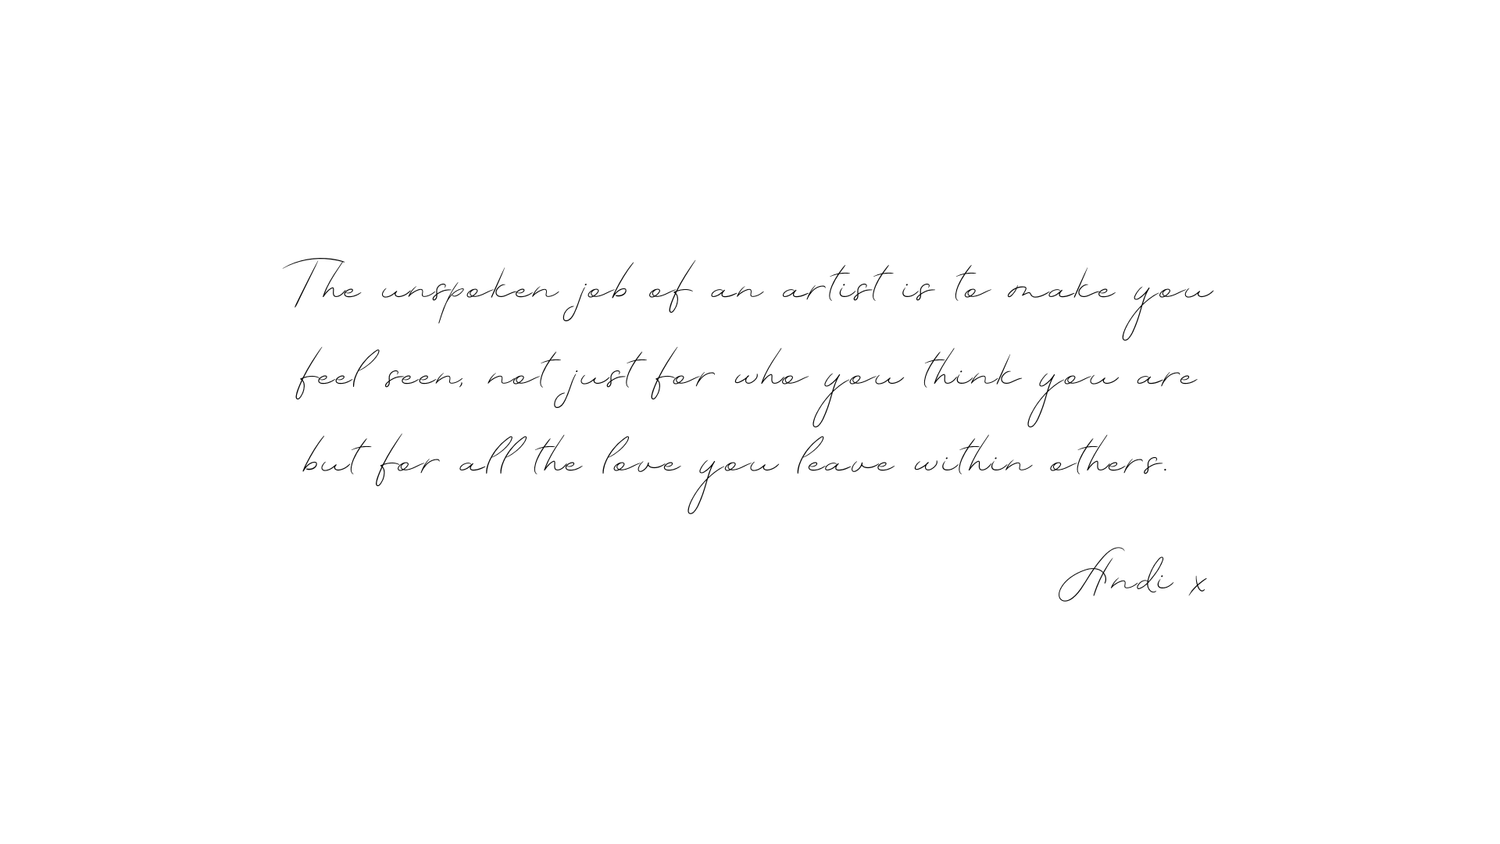 The unspoken job of an artist is to make you
feel seen, not just for who you think you are
but for all the love you leave within others.
Andi x